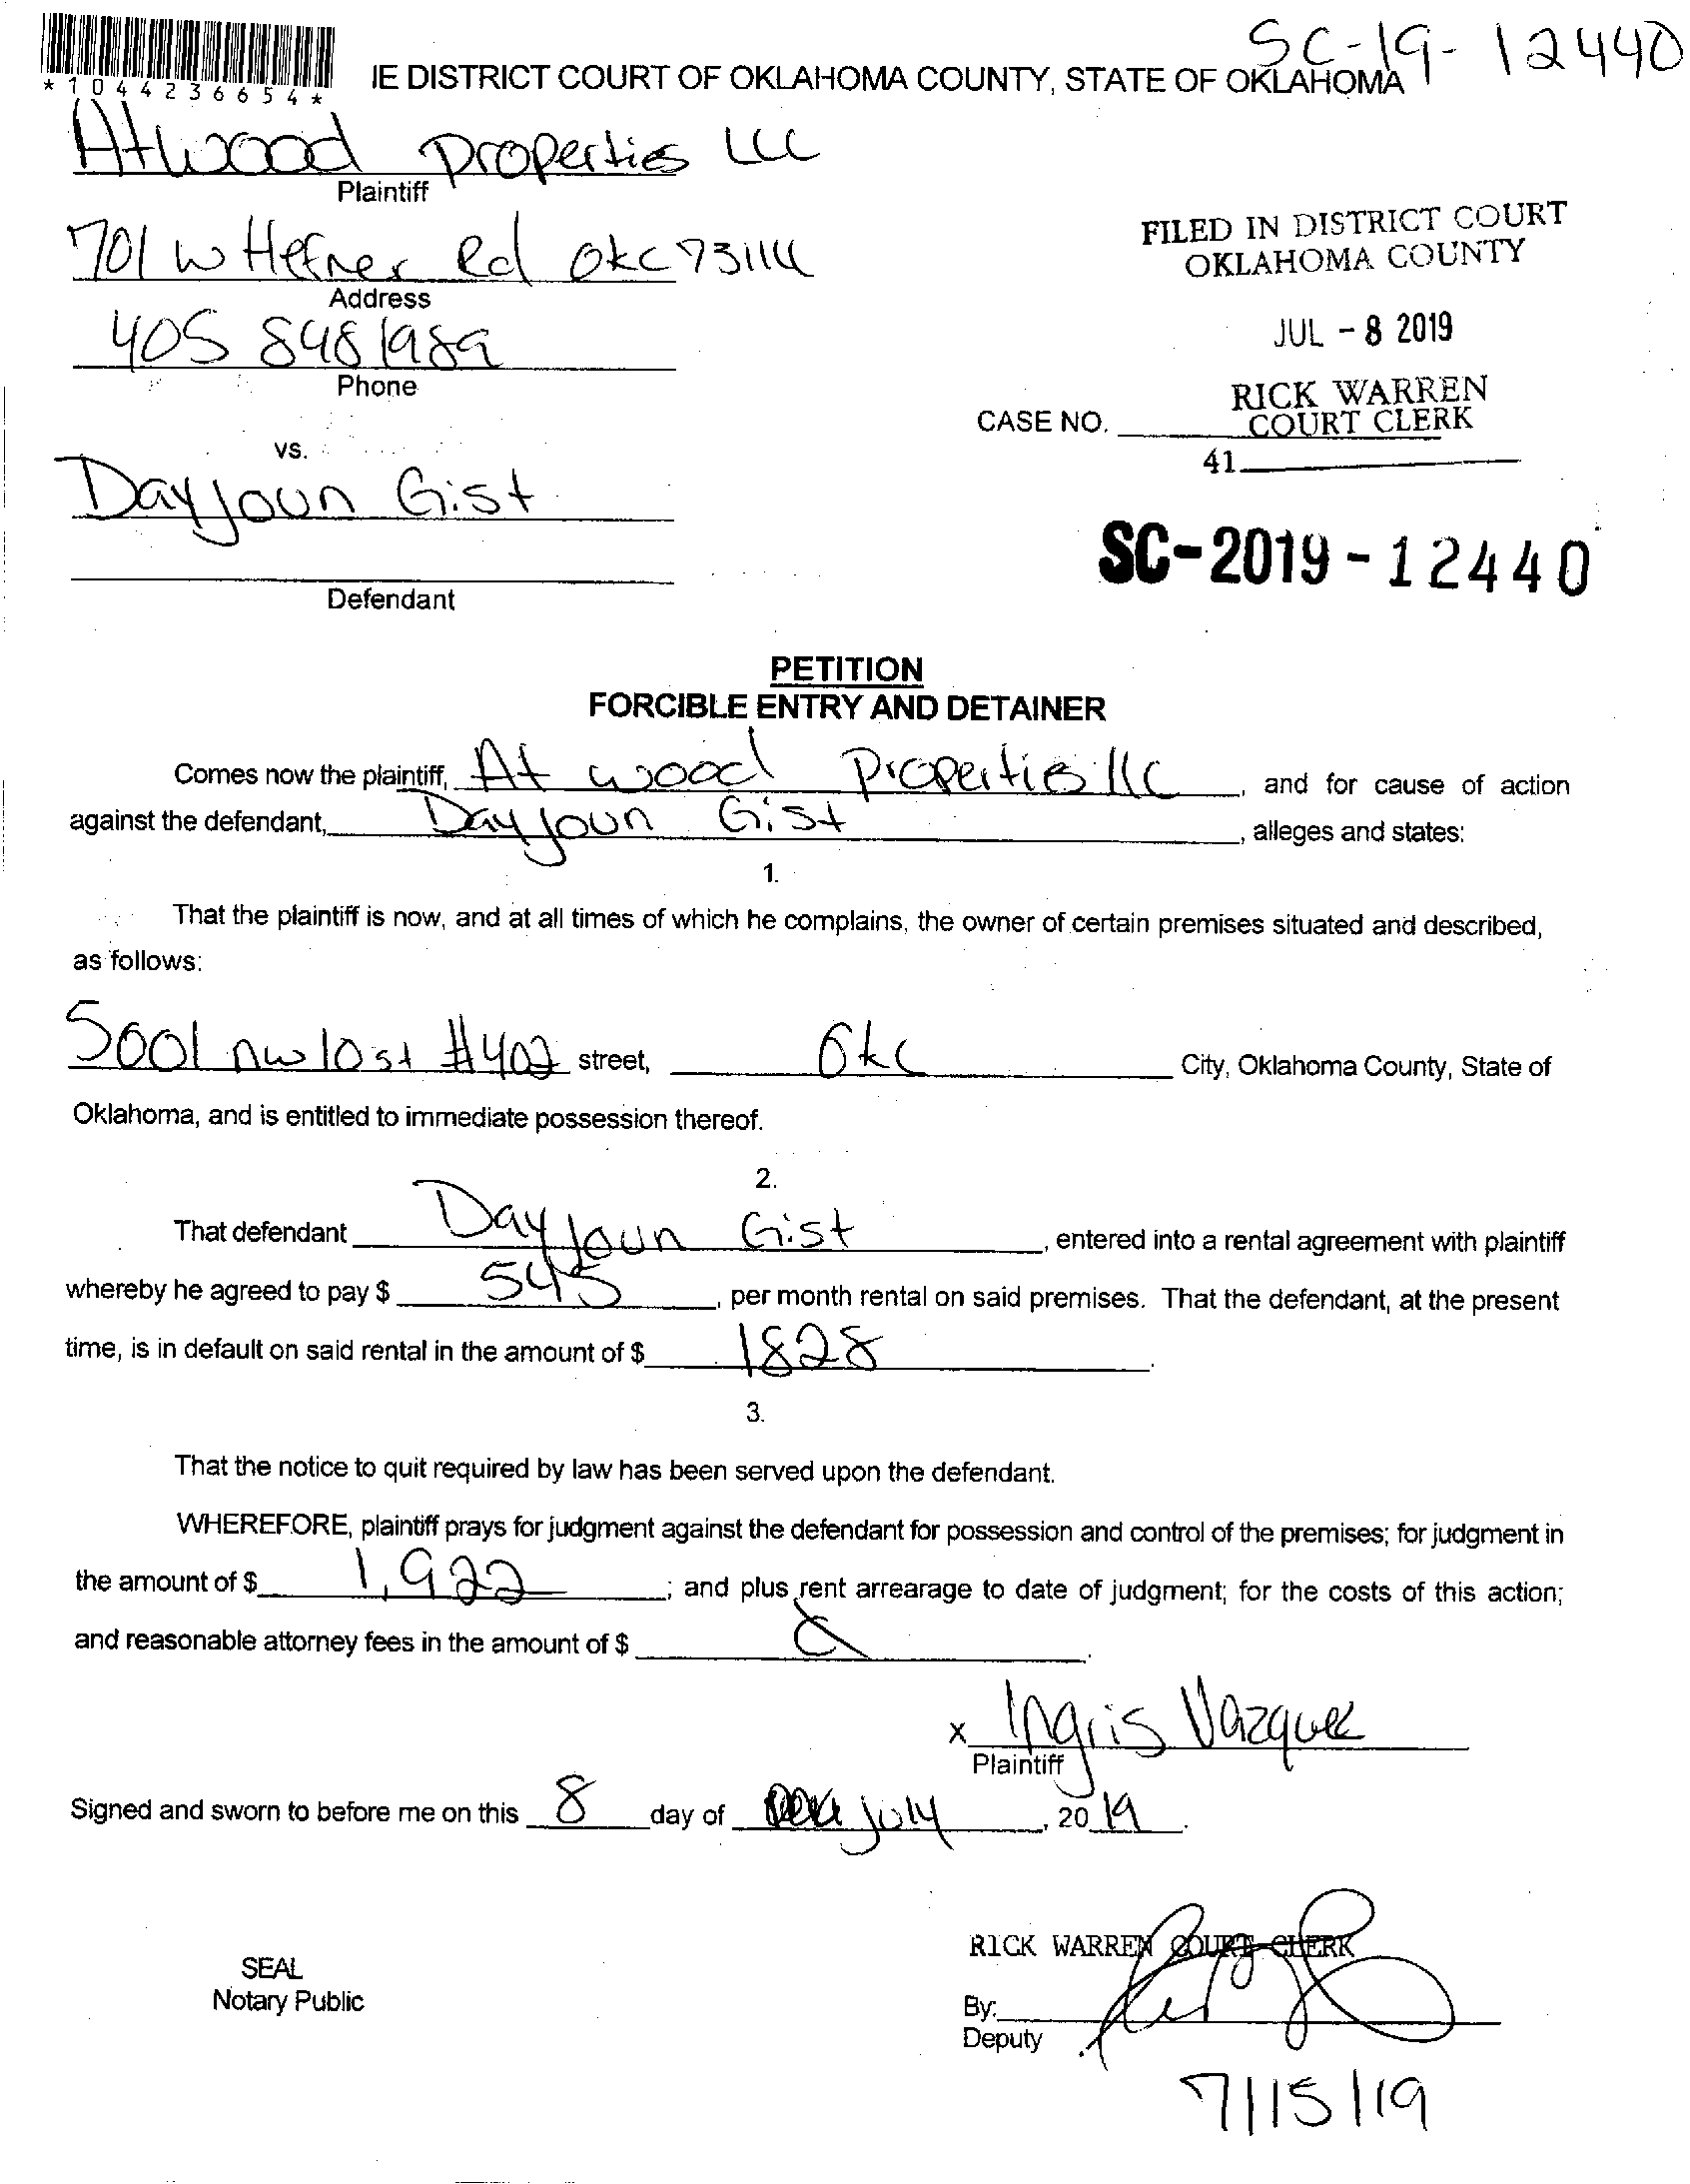 SC-19-12440
*1044236654*
IE DISTRICT COURT OF OKLAHOMA COUNTY, STATE OF OKLAHOMA
Atwood Properties LLC
Plaintiff
701 W Hefner Rd OKC 73114
Address
405 848 1989
Phone
FILED IN DISTRICT COURT
OKLAHOMA COUNTY
JUL - 8 2019
RICK WARREN
COURT CLERK
CASE NO.
41
vs.
Dayjoun Gist
Defendant
SC-2019-12440
PETITION
FORCIBLE ENTRY AND DETAINER
Comes now the plaintiff, At wood Properties llc, and for cause of action
against the defendant, Dayjoun Gist, alleges and states:
1.
That the plaintiff is now, and at all times of which he complains, the owner of certain premises situated and described,
as follows:
5001 nw 10 st #402 street, Okc City, Oklahoma County, State of
Oklahoma, and is entitled to immediate possession thereof.
2.
That defendant Dayjoun Gist, entered into a rental agreement with plaintiff
whereby he agreed to pay $ 545, per month rental on said premises. That the defendant, at the present
time, is in default on said rental in the amount of $ 1828.
3.
That the notice to quit required by law has been served upon the defendant.
WHEREFORE, plaintiff prays for judgment against the defendant for possession and control of the premises; for judgment in
the amount of $ 1,922; and plus rent arrearage to date of judgment; for the costs of this action;
and reasonable attorney fees in the amount of $
x Ingris Vazquez
Plaintiff
Signed and sworn to before me on this 8 day of July, 2019.
RICK WARREN COURT CLERK
SEAL
Notary Public
By:
Deputy
7/15/19